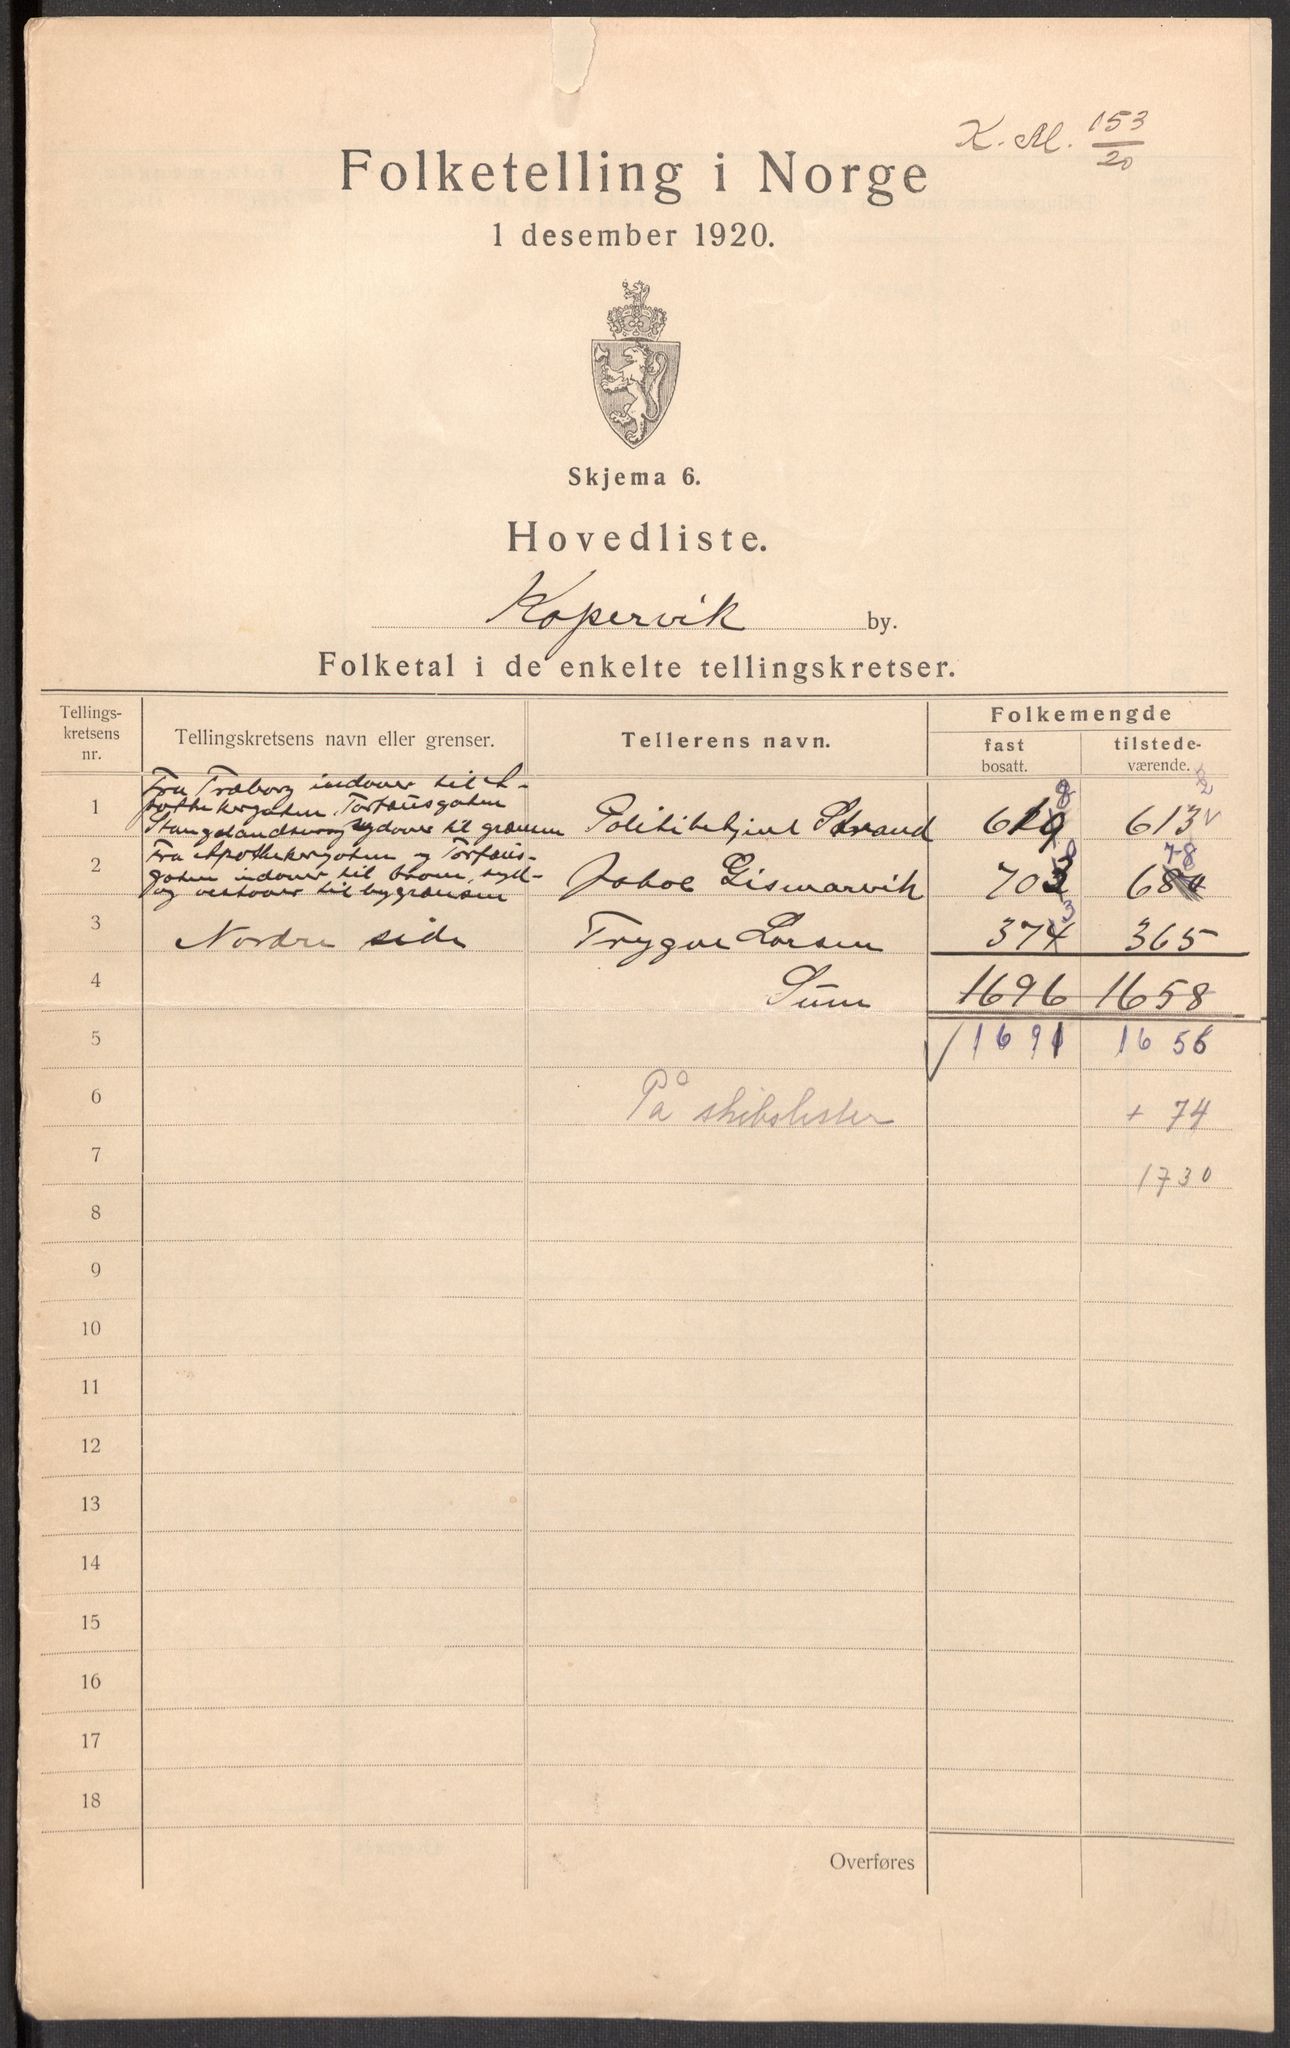 K. M. 153/20
Folketelling i Norge
1 desember 1920.
Skjema 6.
Hovedliste.
Kopervik by.
Folketal i de enkelte tellingskretser.
Tellings-
kretsens
nr.
Tellingskretsens navn eller grenser.
Tellerens navn.
Folkemengde
fast
bosatt.
tilstede-
værende.
1
Fra Træborg indover til A-
pothekergaten, Torfæusgaten
Stangelandsveg sydover til grænsen
Politibetjent Strand 619 8 613 2
2
Fra Apothekergaten og Torfæus-
gaten indover til broen, syd-
og vestover til bygrænsen
Jakob Gismarvik 703 0 680 78
3 Nordre side Trygve Larsen 374 3 365
4 Sum 1696 1658
5 1691 1656
6 På skibslister + 74
7 1730
8
9
10
11
12
13
14
15
16
17
18
Overføres